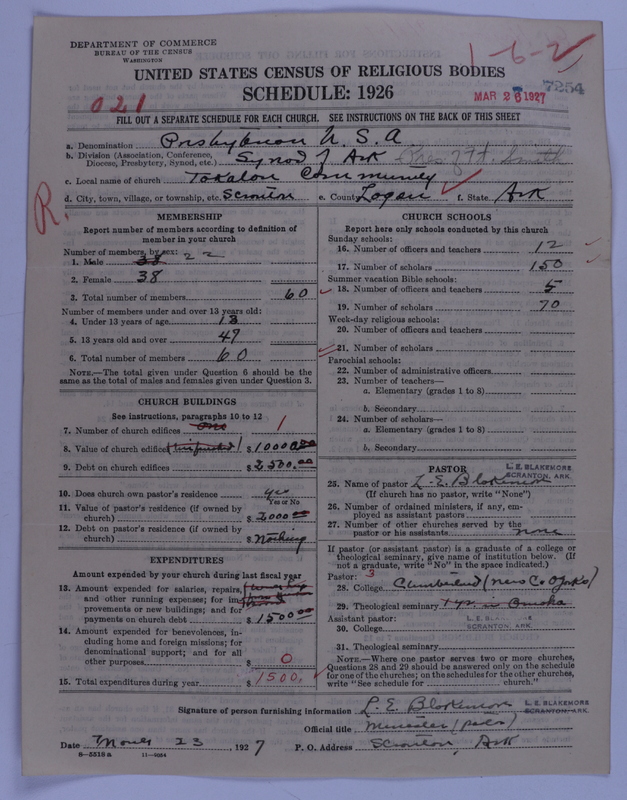 DEPARTMENT OF COMMERCE
BUREAU OF THE CENSUS
WASHINGTON
1-6-2
UNITED STATES CENSUS OF RELIGIOUS BODIES
7254
SCHEDULE: 1926
MAR 26 1927
021
FILL OUT A SEPARATE SCHEDULE FOR EACH CHURCH. SEE INSTRUCTIONS ON THE BACK OF THIS SHEET
a. Denomination Presbyterian U.S.A
b. Division (Association, Conference, Diocese, Presbytery, Synod, etc.) Synod of Ark Pres. of Ft. Smith
c. Local name of church Tokalon Community
d. City, town, village, or township, etc. Scranton e. County Logan f. State Ark
R.
MEMBERSHIP
Report number of members according to definition of
member in your church
Number of members, by sex:
1. Male 38 22
2. Female 38
3. Total number of members 60
Number of members under and over 13 years old:
4. Under 13 years of age 13
5. 13 years old and over 47
6. Total number of members 60
NOTE.—The total given under Question 6 should be
same as the total of males and females given under Question 3.
CHURCH BUILDINGS
See instructions, paragraphs 10 to 12
7. Number of church edifices One 1
8. Value of church edifices (Unfinished) $10000.00
9. Debt on church edifices $2,500.00
10. Does church own pastor's residence yes
Yes or No
11. Value of pastor's residence (if owned by
church) $2000.00
12. Debt on pastor's residence (if owned by
church) $Nothing
EXPENDITURES
Amount expended by your church during last fiscal year
13. Amount expended for salaries, repairs,
and other running expenses; for im-
provements or new buildings; and for
payments on church debt $1500.00
14. Amount expended for benevolences, in-
cluding home and foreign missions; for
denominational support; and for all
other purposes $0
15. Total expenditures during year $1500.
CHURCH SCHOOLS
Report here only schools conducted by this church
Sunday schools:
16. Number of officers and teachers 12
17. Number of scholars 150
Summer vacation Bible schools:
18. Number of officers and teachers 5
19. Number of scholars 70
Week-day religious schools:
20. Number of officers and teachers
21. Number of scholars
Parochial schools:
22. Number of administrative officers
23. Number of teachers—
a. Elementary (grades 1 to 8)
b. Secondary
24. Number of scholars—
a. Elementary (grades 1 to 8)
b. Secondary
PASTOR
L. E. BLAKEMORE
SCRANTON, ARK.
25. Name of pastor L. E. Blakemore
(If church has no pastor, write "None")
26. Number of ordained ministers, if any, em-
ployed as assistant pastors
27. Number of other churches served by the
pastor or his assistants none
If pastor (or assistant pastor) is a graduate of a college or
theological seminary, give name of institution below. (If
not a graduate, write "No" in the space indicated.)
Pastor: 3
28. College Cumberland (now C. of Ozarks)
29. Theological seminary 1 yr. in Omaha
Assistant pastor:
L. E. BLAKEMORE
SCRANTON, ARK.
30. College
31. Theological seminary
NOTE.—Where one pastor serves two or more churches,
Questions 28 and 29 should be answered only on the schedule
for one of the churches; on the schedules for the other churches,
write "See schedule for church."
Signature of person furnishing information L. E. Blakemore
L. E. BLAKEMORE
SCRANTON, ARK.
Official title Minister (Pastor)
Date March 23 1927 P. O. Address Scranton, Ark
8—5518 a 11—9084